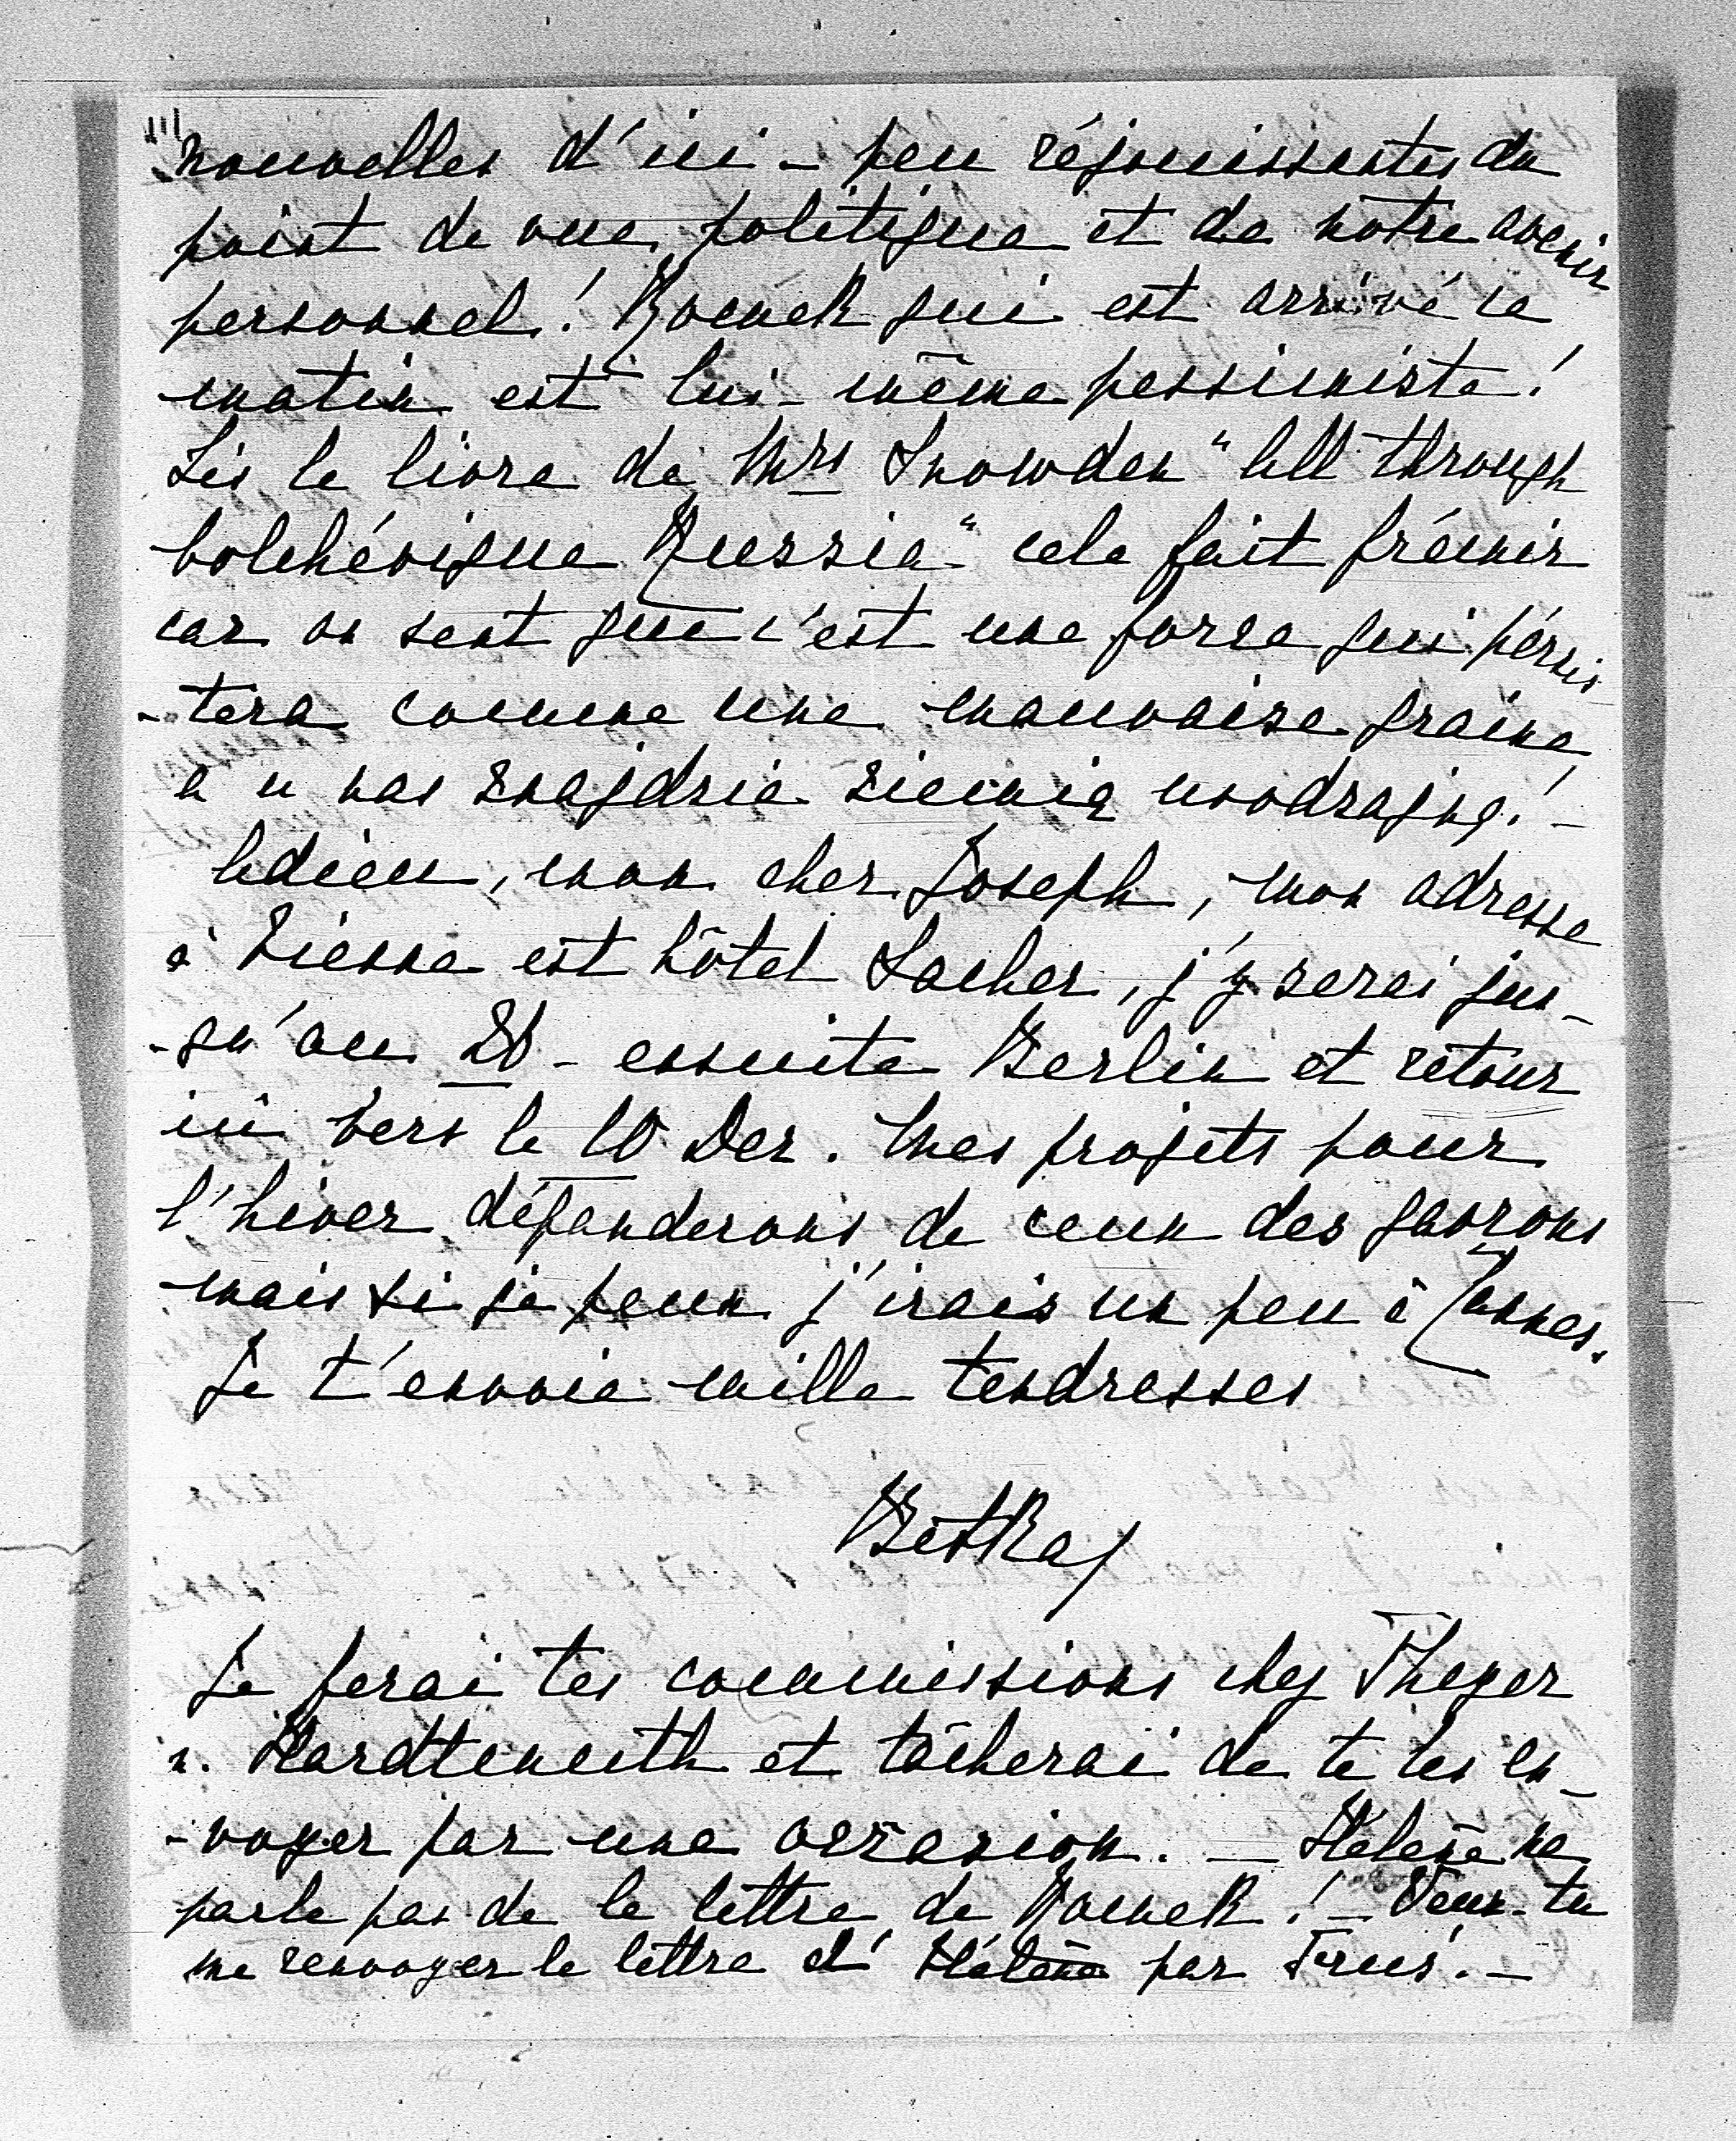 nouvelles d'ici - peu réjouissantes du
point de vue politique et de nôtre avenir
personnel! Romek qui est arrivé ce
matin est lui-même pessimiste!
Lis le livre de Mrs Snowden "All through
bolchévique Russia" cela fait frémir
car on sent que c'est une force qui persis
-tera comme une mauvaise graine
a u nas znajdzie ziemię urodzajną! -
Adieu, mon cher Joseph, mon adresse
à Vienne est hôtel Sacher, j'y serai jus-
-qu'au 20 - ensuite Berlin et retour
ici vers le 10 Dec. Mes projets pour
l'hiver dépenderons de ceux des garçons
mais si je peux j'irais un peu à Cannes.
Je t'envoie mille tendresses
Betka
Je ferai tes commissions chez Theyer
u. Hardtmuth et tâcherai de te les en-
-voyer par une occasion. - Hélène ne
parle pas de la lettre de Romek! - Veux-tu
me renvoyer la lettre d'Hélène par